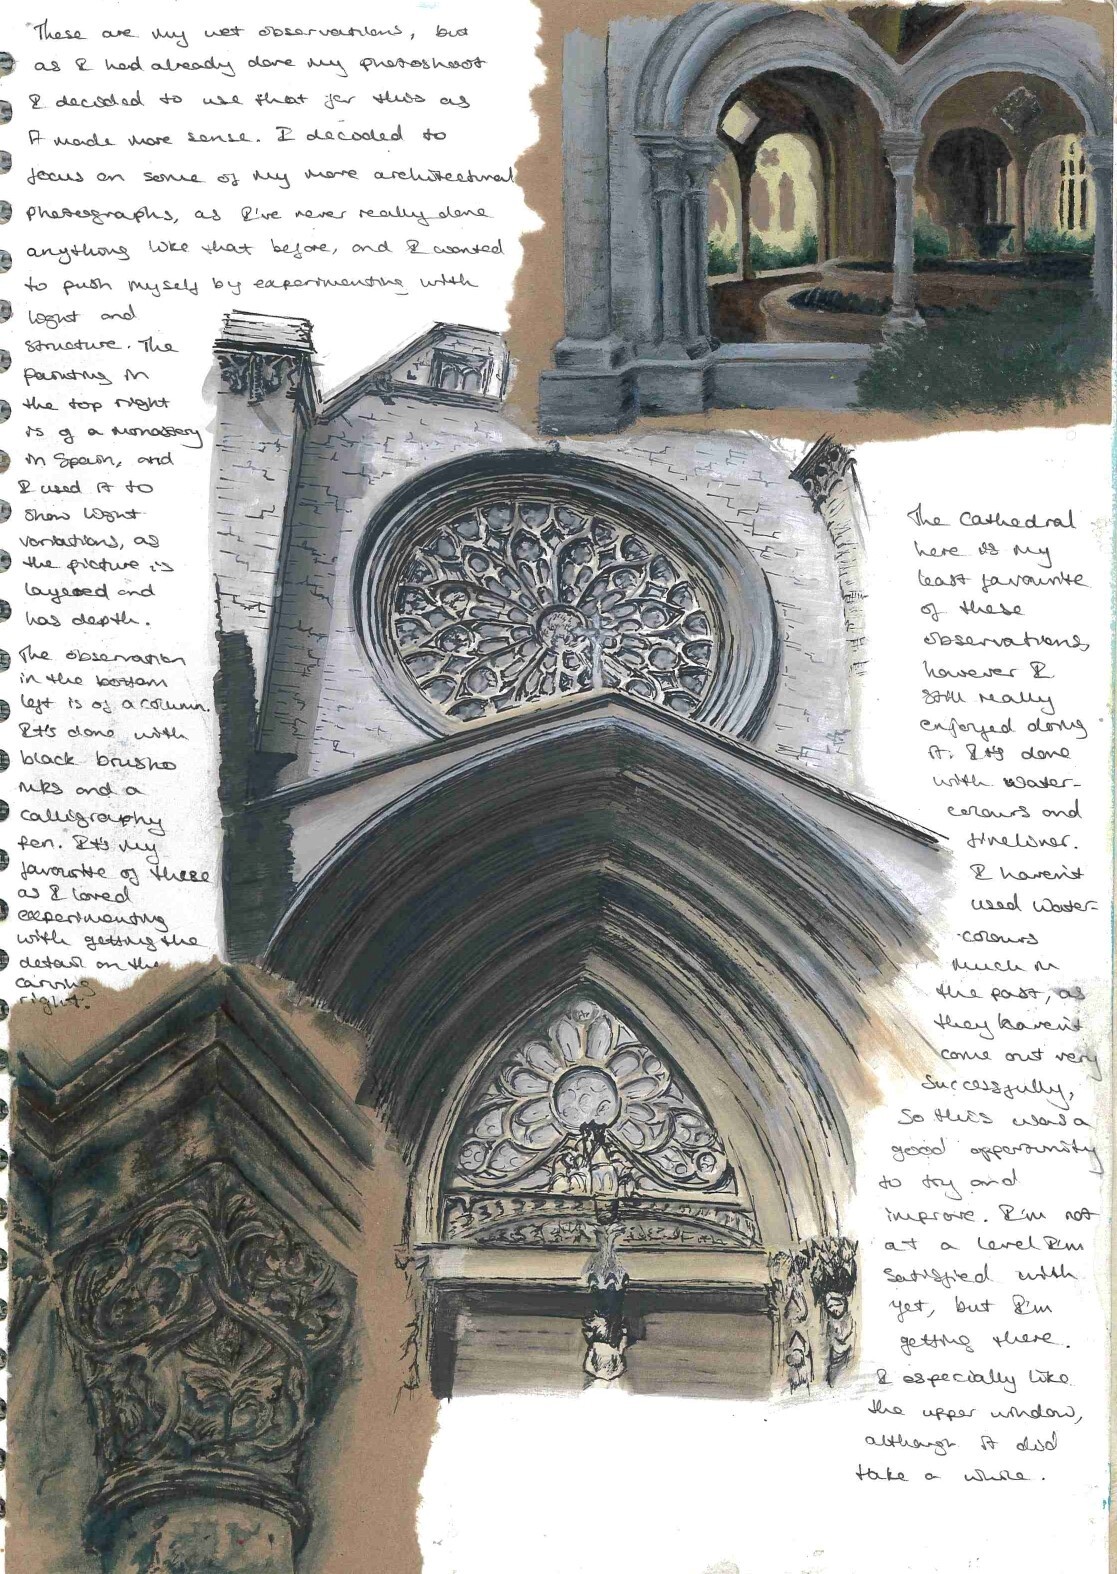 These are my wet observations, but
as I had already done my photoshoot
I decided to use that for this as
it made more sense. I decoded to
focus on some of my more architectural
photographs, as I've never really done
anything like that before, and I wanted
to push myself by experimenting with
light and
structure. The
painting in
the top right
is of a monastery
in Spain, and
I used it to
show light
variations, as
the picture is
layered and
has depth.
The observation
in the bottom
left is of a column.
It's done with
black brusho
inks and a
calligraphy
pen. It's my
favourite of these
as I loved
experimenting
with getting the
detail on the
carving
right.
The Cathedral
here is my
least favourite
of these
observations,
however I
still really
enjoyed doing
it. It's done
with water-
colours and
fineliner.
I haven't
used water-
colours
much in
the past, as
they haven't
come out very
successfully,
so this was a
good opportunity
to try and
improve. I'm not
at a level I'm
satisfied with
yet, but I'm
getting there.
I especially like
the upper window,
although it did
take a while.